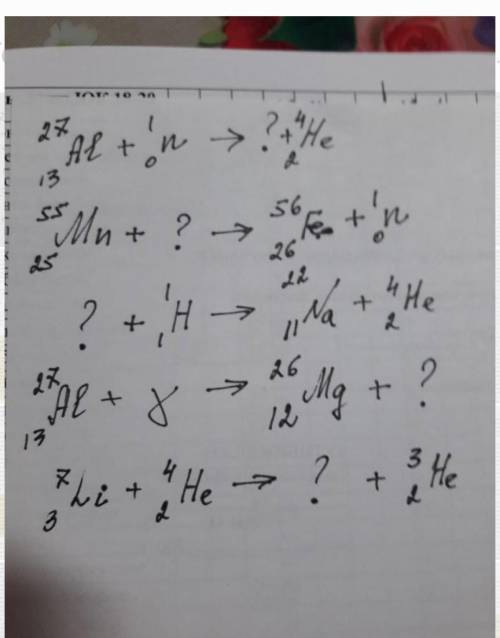 ²⁷₁₃Al + ¹₀n → ? + ⁴₂He
⁵⁵₂₅Mn + ? → ⁵⁶₂₆Fe + ¹₀n
? + ¹₁H → ²²₁₁Na + ⁴₂He
²⁷₁₃Al + γ → ²⁶₁₂Mg + ?
⁷₃Li + ⁴₂He → ? + ³₂He